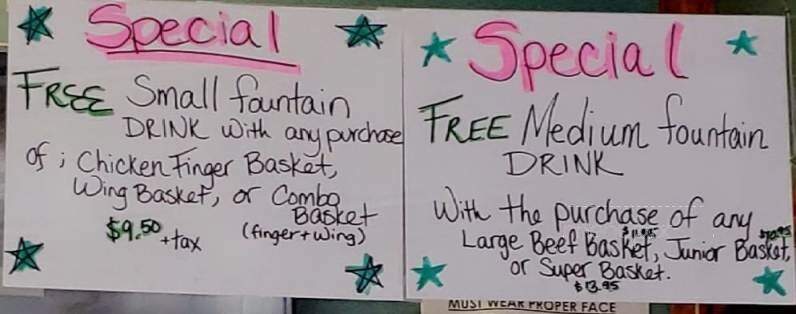 Special
FREE Small fountain
DRINK with any purchase
of; Chicken Finger Basket,
Wing Basket, or Combo
Basket
$9.50 +tax (finger+wing)
Special
FREE Medium fountain
DRINK
With the purchase of any
Large Beef Basket, Junior Basket,
or Super Basket.
$13.95
MUST WEAR PROPER FACE